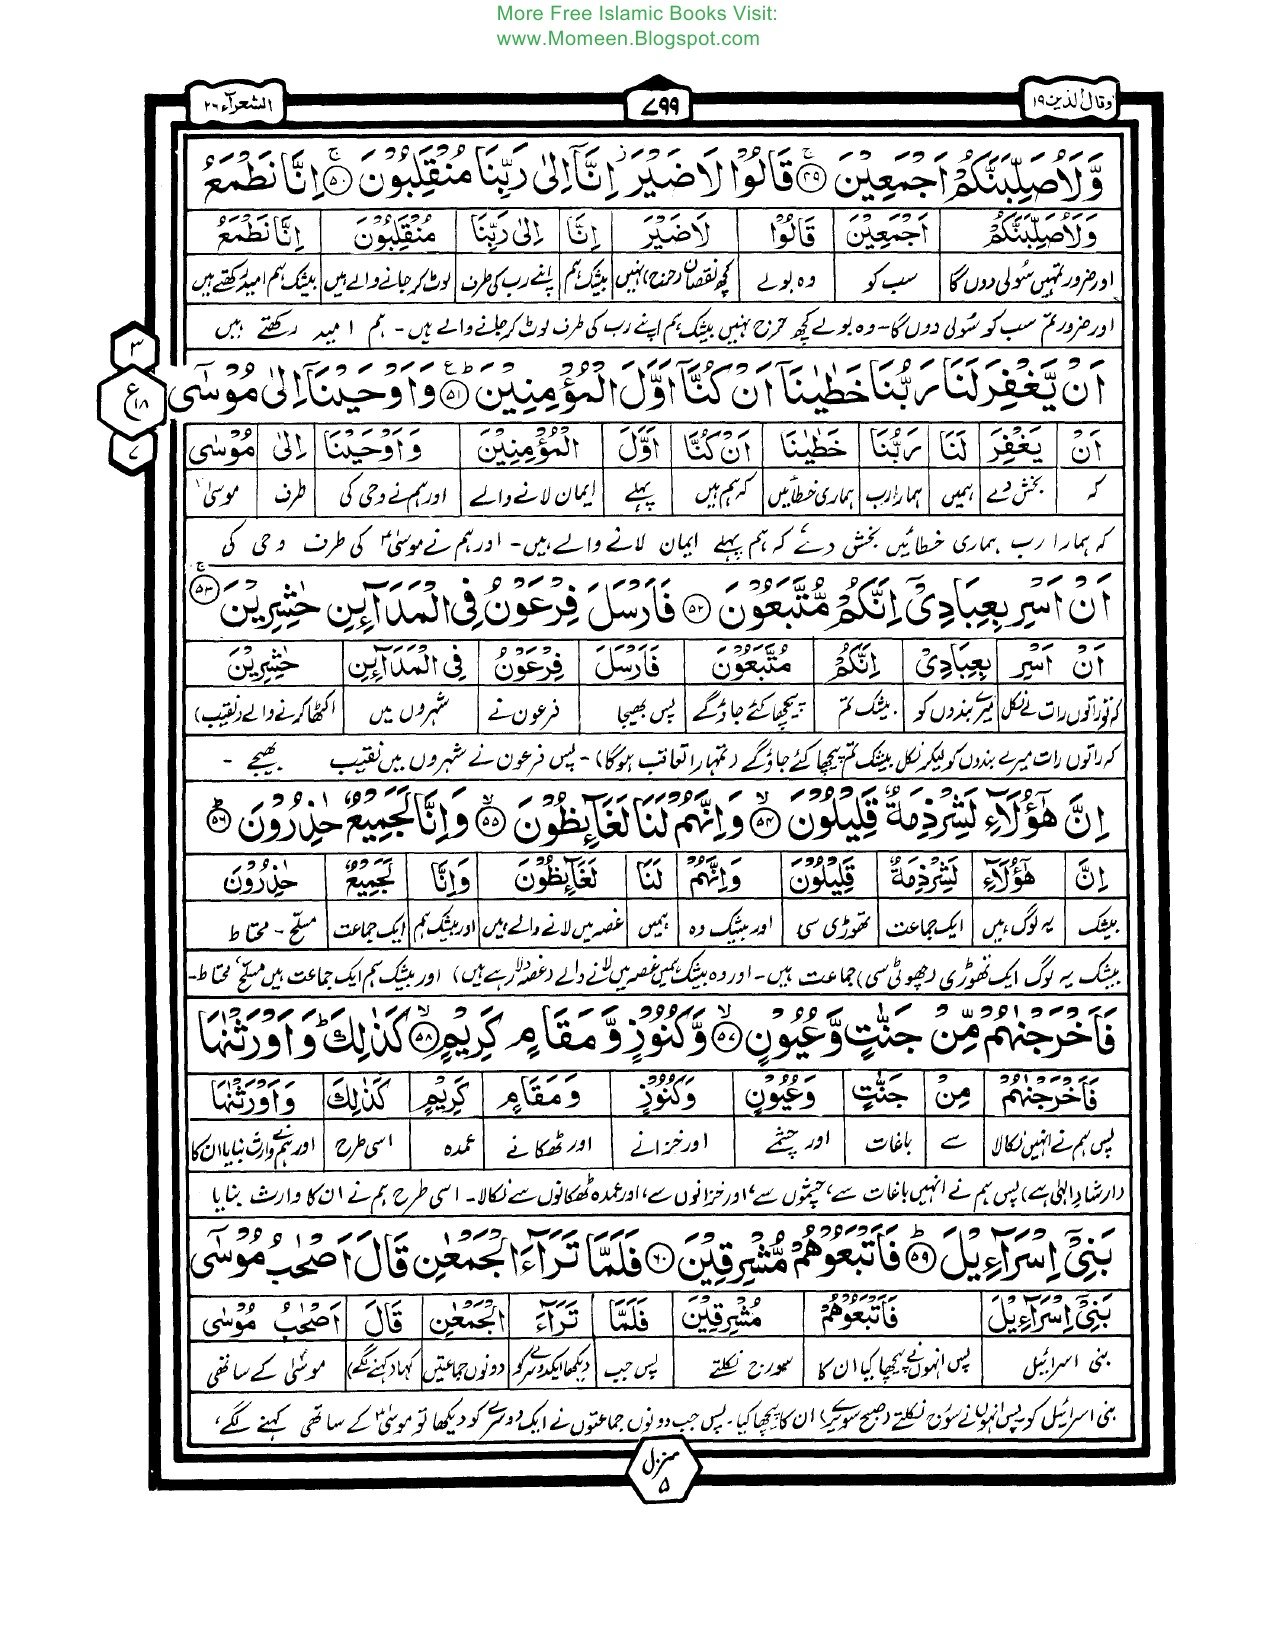 More Free Islamic Books Visit:
www.Momeen.Blogspot.com
وقال الذین ۱۹
۷۹۹
الشعرآء ۲۶
وَّلَاُوصَلِّبَنَّكُمْ اَجْمَعِیْنَ ۴۹ قَالُوْا لَا ضَیْرَ ز اِنَّاۤ اِلٰى رَبِّنَا مُنْقَلِبُوْنَ ۵۰ اِنَّا نَطْمَعُ
وَّلَاُوصَلِّبَنَّكُمْ اَجْمَعِیْنَ قَالُوْا لَا ضَیْرَ اِنَّا اِلٰى رَبِّنَا مُنْقَلِبُوْنَ اِنَّا نَطْمَعُ
اور ضرور تمہیں سُولی دوں گا سب کو وہ بولے کچھ نقصان (حرج) نہیں بیشک ہم اپنے رب کی طرف لوٹ کر جانے والے ہیں بیشک ہم امید رکھتے ہیں
اور ضرور تم سب کو سُولی دوں گا۔ وہ بولے کچھ حرج نہیں بیشک ہم اپنے رب کی طرف لوٹ کر جانے والے ہیں۔ ہم امید رکھتے ہیں
۳
ع
۱۸
۷
اَنْ یَّغْفِرَ لَنَا رَبُّنَا خَطٰیٰنَاۤ اَنْ كُنَّاۤ اَوَّلَ الْمُؤْمِنِیْنَ ۵۱ وَاَوْحَیْنَاۤ اِلٰى مُوْسٰۤى
اَنْ یَغْفِرَ لَنَا رَبُّنَا خَطٰیٰنَا اَنْ كُنَّا اَوَّلَ الْمُؤْمِنِیْنَ وَاَوْحَیْنَا اِلٰى مُوْسٰى
کہ بخش دے ہمیں ہمارا رب ہماری خطائیں کہ ہم ہیں پہلے ایمان لانے والے اور ہم نے وحی کی طرف موسیٰ
کہ ہمارا رب ہماری خطائیں بخش دے کہ ہم پہلے ایمان لانے والے ہیں۔ اور ہم نے موسیٰؑ کی طرف وحی کی
اَنْ اَسْرِ بِعِبَادِیْۤ اِنَّكُمْ مُّتَّبَعُوْنَ ۵۲ فَاَرْسَلَ فِرْعَوْنُ فِی الْمَدَآىِٕنِ حٰشِرِیْنَ ۵۳
اَنْ اَسْرِ بِعِبَادِیْۤ اِنَّكُمْ مُتَّبَعُوْنَ فَاَرْسَلَ فِرْعَوْنُ فِی الْمَدَآىِٕنِ حٰشِرِیْنَ
کہ تو راتوں رات لے نکل میرے بندوں کو بیشک تم پیچھا کئے جاؤگے پس بھیجا فرعون نے شہروں میں اکٹھا کرنے والے (نقیب)
کہ راتوں رات میرے بندوں کو لیکر نکل بیشک تم پیچھا کئے جاؤگے (تمہارا تعاقب ہوگا)۔ پس فرعون نے شہروں میں نقیب بھیجے۔
اِنَّ هٰۤؤُلَآءِ لَشِرْذِمَةٌ قَلِیْلُوْنَ ۵۴ وَاِنَّهُمْ لَنَا لَغَآىِٕظُوْنَ ۵۵ وَاِنَّا لَجَمِیْعٌ حٰذِرُوْنَ ۵۶
اِنَّ هٰۤؤُلَآءِ لَشِرْذِمَةٌ قَلِیْلُوْنَ وَاِنَّهُمْ لَنَا لَغَآىِٕظُوْنَ وَاِنَّا لَجَمِیْعٌ حٰذِرُوْنَ
بیشک یہ لوگ ہیں ایک جماعت تھوڑی سی اور بیشک وہ ہمیں غصہ میں لانے والے ہیں اور بیشک ہم ایک جماعت مسلح۔ محتاط
بیشک یہ لوگ ایک تھوڑی (چھوٹی سی) جماعت ہیں۔ اور وہ بیشک ہمیں غصہ میں لانے والے (غصہ دلا رہے ہیں) اور بیشک ہم ایک جماعت ہیں مسلح، محتاط۔
فَاَخْرَجْنٰهُمْ مِّنْ جَنّٰتٍ وَّعُیُوْنٍ ۵۷ وَّكُنُوْزٍ وَّمَقَامٍ كَرِیْمٍ ۵۸ كَذٰلِكَ ط وَاَوْرَثْنٰهَا
فَاَخْرَجْنٰهُمْ مِنْ جَنّٰتٍ وَعُیُوْنٍ وَكُنُوْزٍ وَمَقَامٍ كَرِیْمٍ كَذٰلِكَ وَاَوْرَثْنٰهَا
پس ہم نے انہیں نکالا سے باغات اور چشمے اور خزانے اور ٹھکانے عمدہ اسی طرح اور ہم نے وارث بنایا ان کا
(ارشاد الٰہی ہے) پس ہم نے انہیں باغات سے، چشموں سے، اور خزانوں سے، اور عمدہ ٹھکانوں سے نکالا۔ اسی طرح ہم نے ان کا وارث بنایا
بَنِیْۤ اِسْرَآءِیْلَ ۵۹ فَاَتْبَعُوْهُمْ مُّشْرِقِیْنَ ۶۰ فَلَمَّا تَرَآءَ الْجَمْعٰنِ قَالَ اَصْحٰبُ مُوْسٰۤى
بَنِیْۤ اِسْرَآءِیْلَ فَاَتْبَعُوْهُمْ مُشْرِقِیْنَ فَلَمَّا تَرَآءَ الْجَمْعٰنِ قَالَ اَصْحٰبُ مُوْسٰى
بنی اسرائیل پس انہوں نے پیچھا کیا ان کا سورج نکلتے پس جب دیکھا ایک دوسرے کو دونوں جماعتیں کہا (کہنے لگے) موسیٰ کے ساتھی
بنی اسرائیل کو پس انہوں نے سورج نکلتے (صبح سویرے) ان کا پیچھا کیا۔ پس جب دونوں جماعتوں نے ایک دوسرے کو دیکھا تو موسیٰؑ کے ساتھی کہنے لگے،
منزل ۵